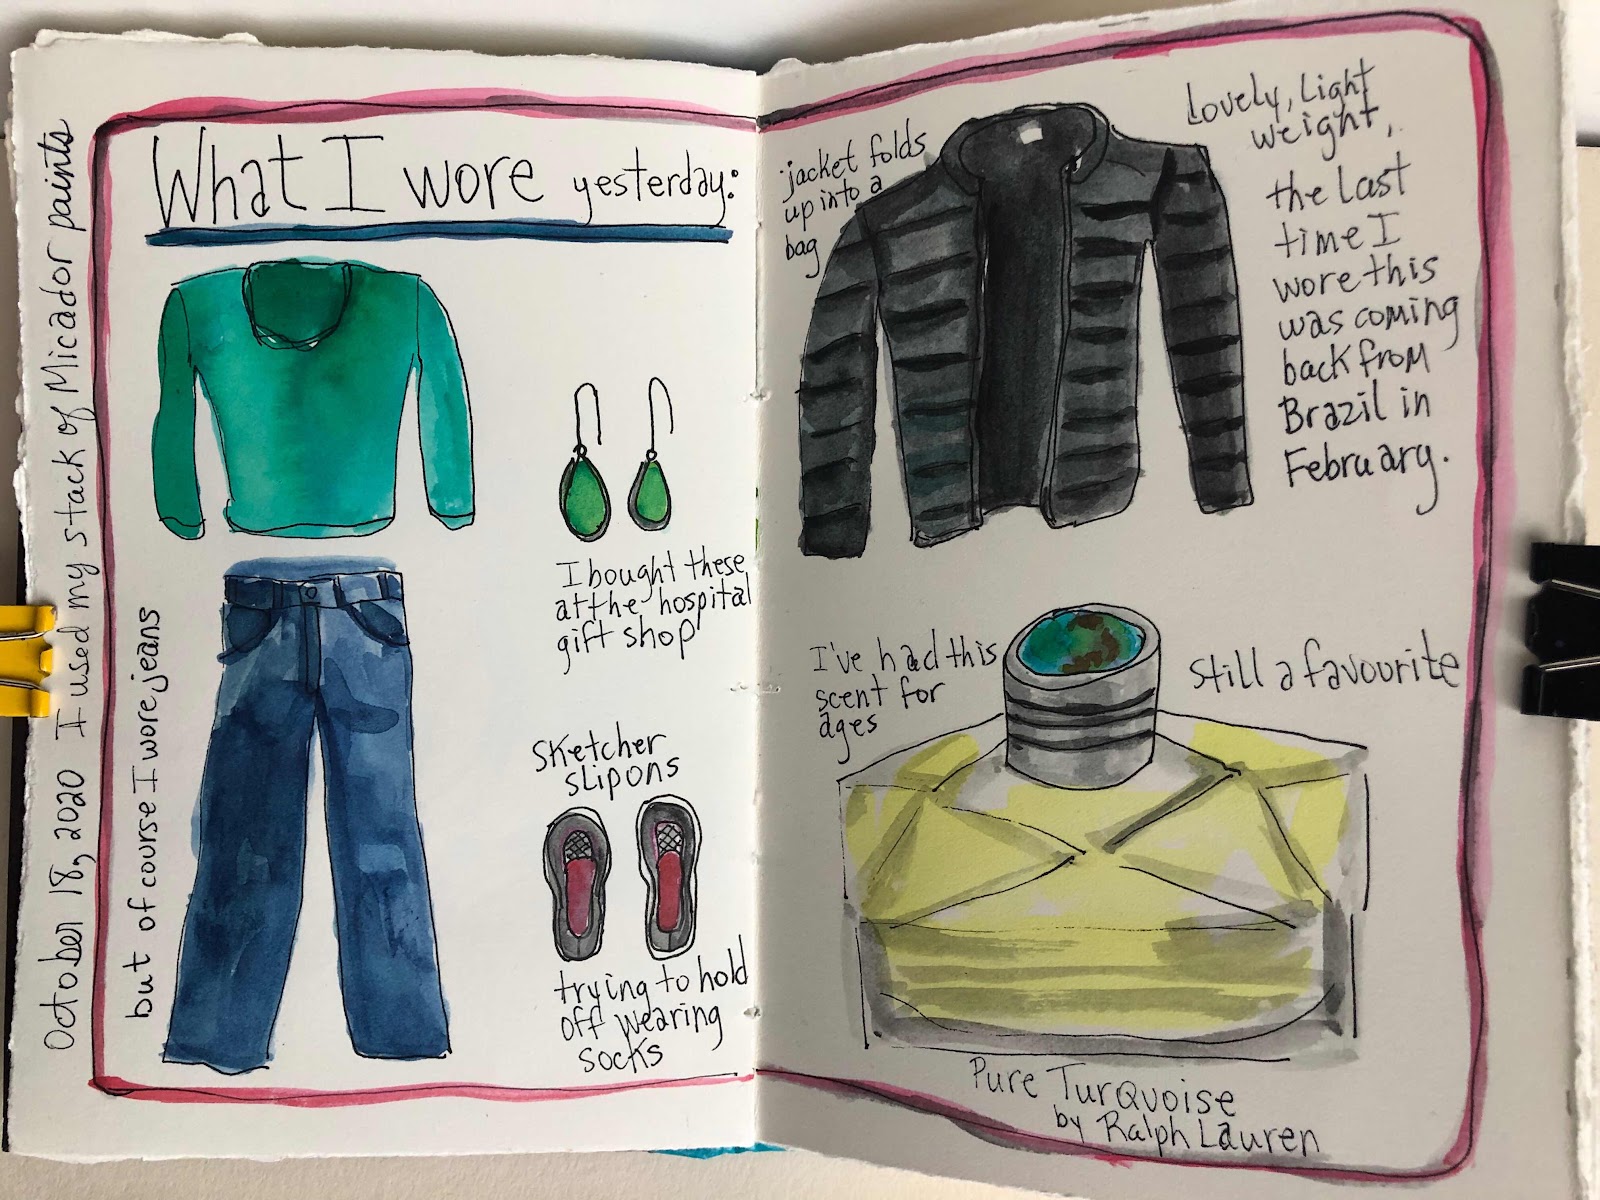 October 18, 2020 I used my stack of Micador paints
What I wore yesterday:
but of course I wore jeans
I bought these
at the hospital
gift shop
Sketcher
slipons
trying to hold
off wearing
socks
jacket folds
up into a
bag
Lovely, Light
weight,
the last
time I
wore this
was coming
back from
Brazil in
February.
I've had this
scent for
ages
Still a favourite
Pure Turquoise
by Ralph Lauren